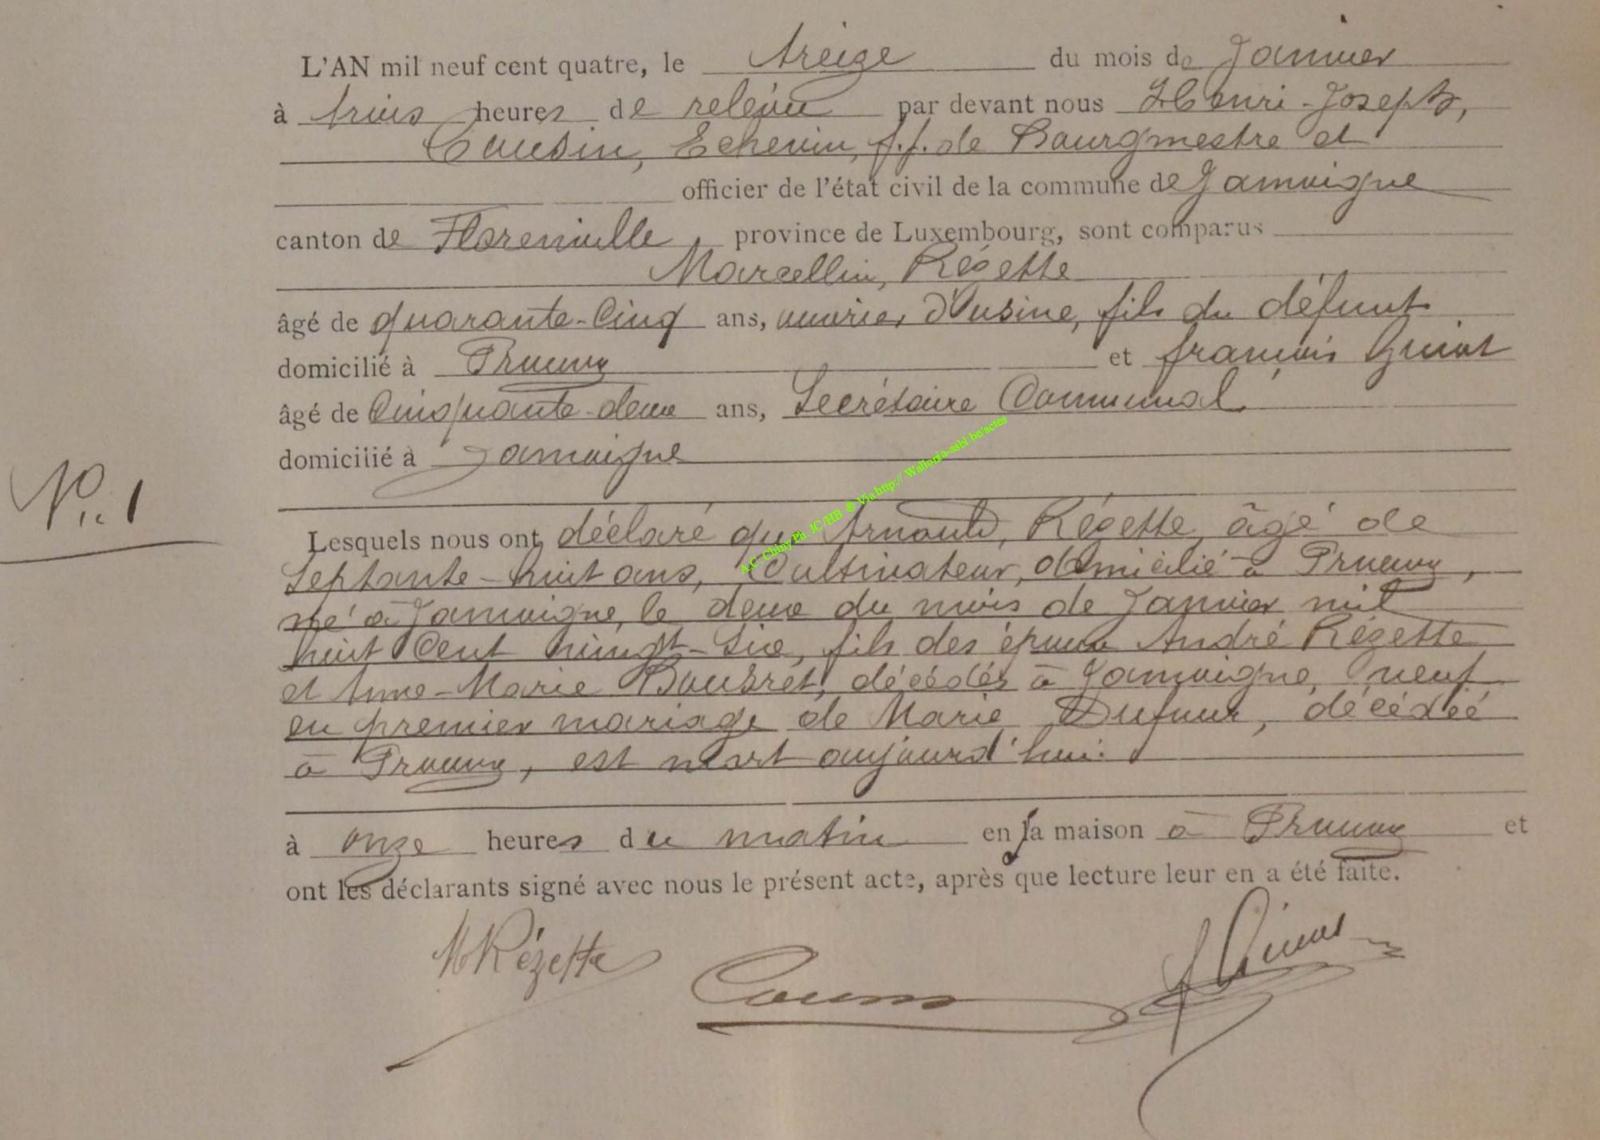 L'AN mil neuf cent quatre, le treize du mois de Janvier
à trois heures de relevée par devant nous Henri-Joseph,
Cousin, Echevin, f.f. de Bourgmestre et
officier de l'état civil de la commune de Jamoigne
canton de Florenville, province de Luxembourg, sont comparus
Marcellin, Rézette
âgé de quarante-Cinq ans, ouvrier d'Usine, fils du défunt
domicilié à Prouvy et françois
âgé de Cinquante-deux ans, Secrétaire Communal
domicilié à Jamoigne
N° 1
Lesquels nous ont déclaré que Arnould, Rézette, âgé de
Septante-huit ans, Cultivateur, domicilié à Prouvy,
né à Jamoigne, le deux du mois de Janvier mil
huit Cent vingt-Six, fils des époux André Rézette
et Anne-Marie décédés à Jamoigne, veuf
en premier mariage de Marie Dufour, décédée
à Prouvy, est mort aujourd'hui
à onze heures du matin en sa maison à Prouvy et
ont les déclarants signé avec nous le présent acte, après que lecture leur en a été faite.
M Rézette
Cousin
A.C. Chiny Ph. JC/HB @ Via http://Wallonia-asbl.be/actes